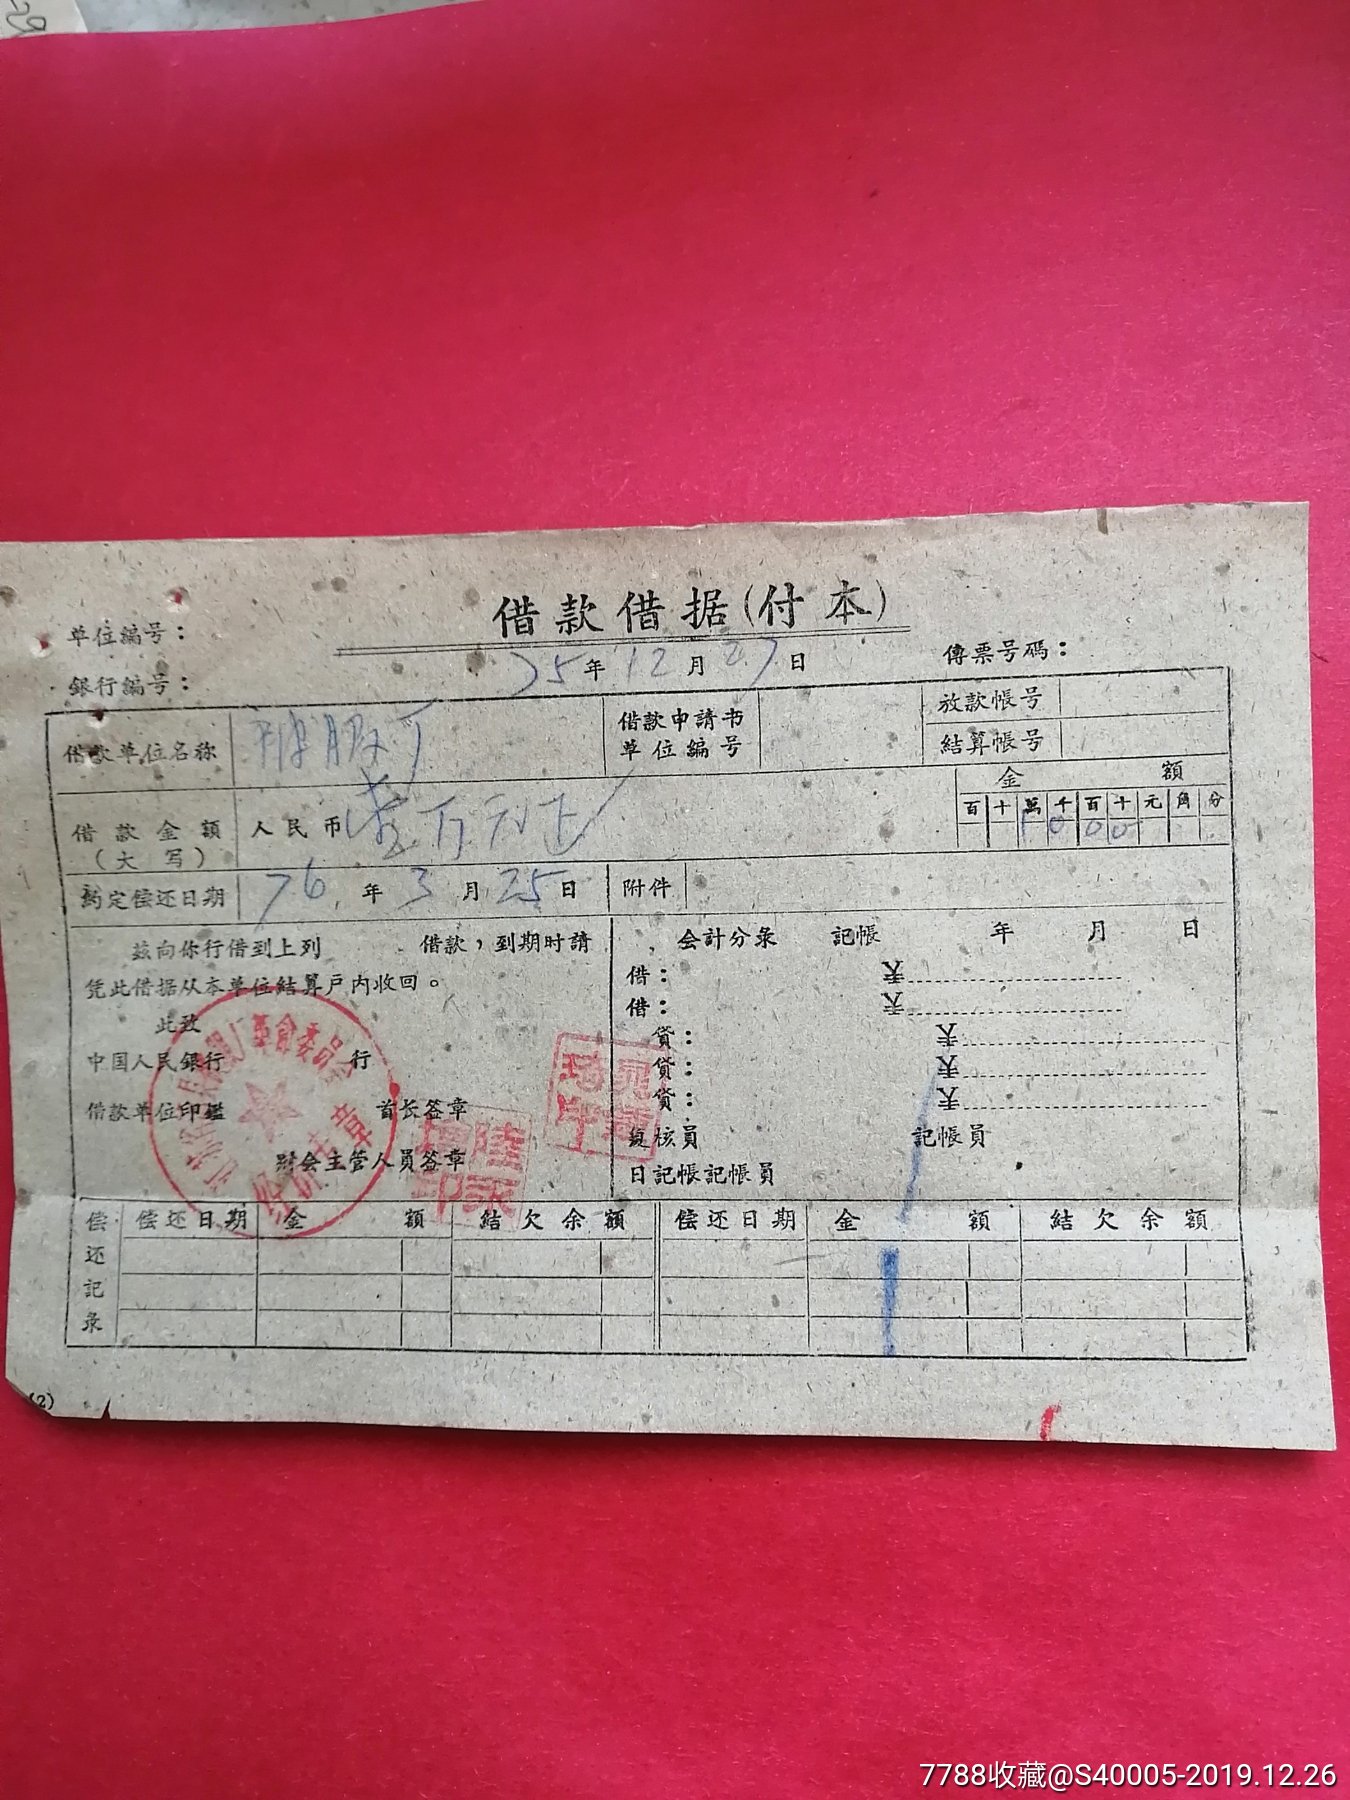 借款借据(付本)
单位編号：
銀行編号：
75年12月27日
傳票号碼：
借款单位名称
服厂
借款申請书
单位編号
放款帳号
結算帳号
借款金額
(大写)
人民币壹万元正
金額
百十萬千百十元角分
1 0 0 0
約定偿还日期
76年3月25日
附件
兹向你行借到上列 借款，到期时請
凭此借据从本单位結算戶內收回。
此致
中国人民銀行 行
借款单位印鑑
首长签章
財会主管人員签章
会計分录 記帳 年 月 日
借：
借：
貸：
貸：
貸：
复核員
記帳員
日記帳記帳員
革命委員
偿还記录
偿还日期 金額 結欠余額 偿还日期 金額 結欠余額
(2)
7788收藏@S40005-2019.12.26